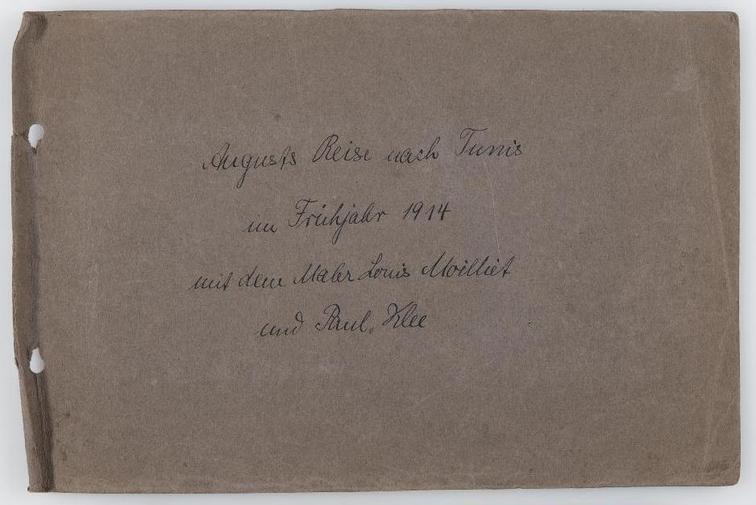 Augusts Reise nach Tunis
im Frühjahr 1914
mit dem Maler Louis Moilliet
und Paul Klee